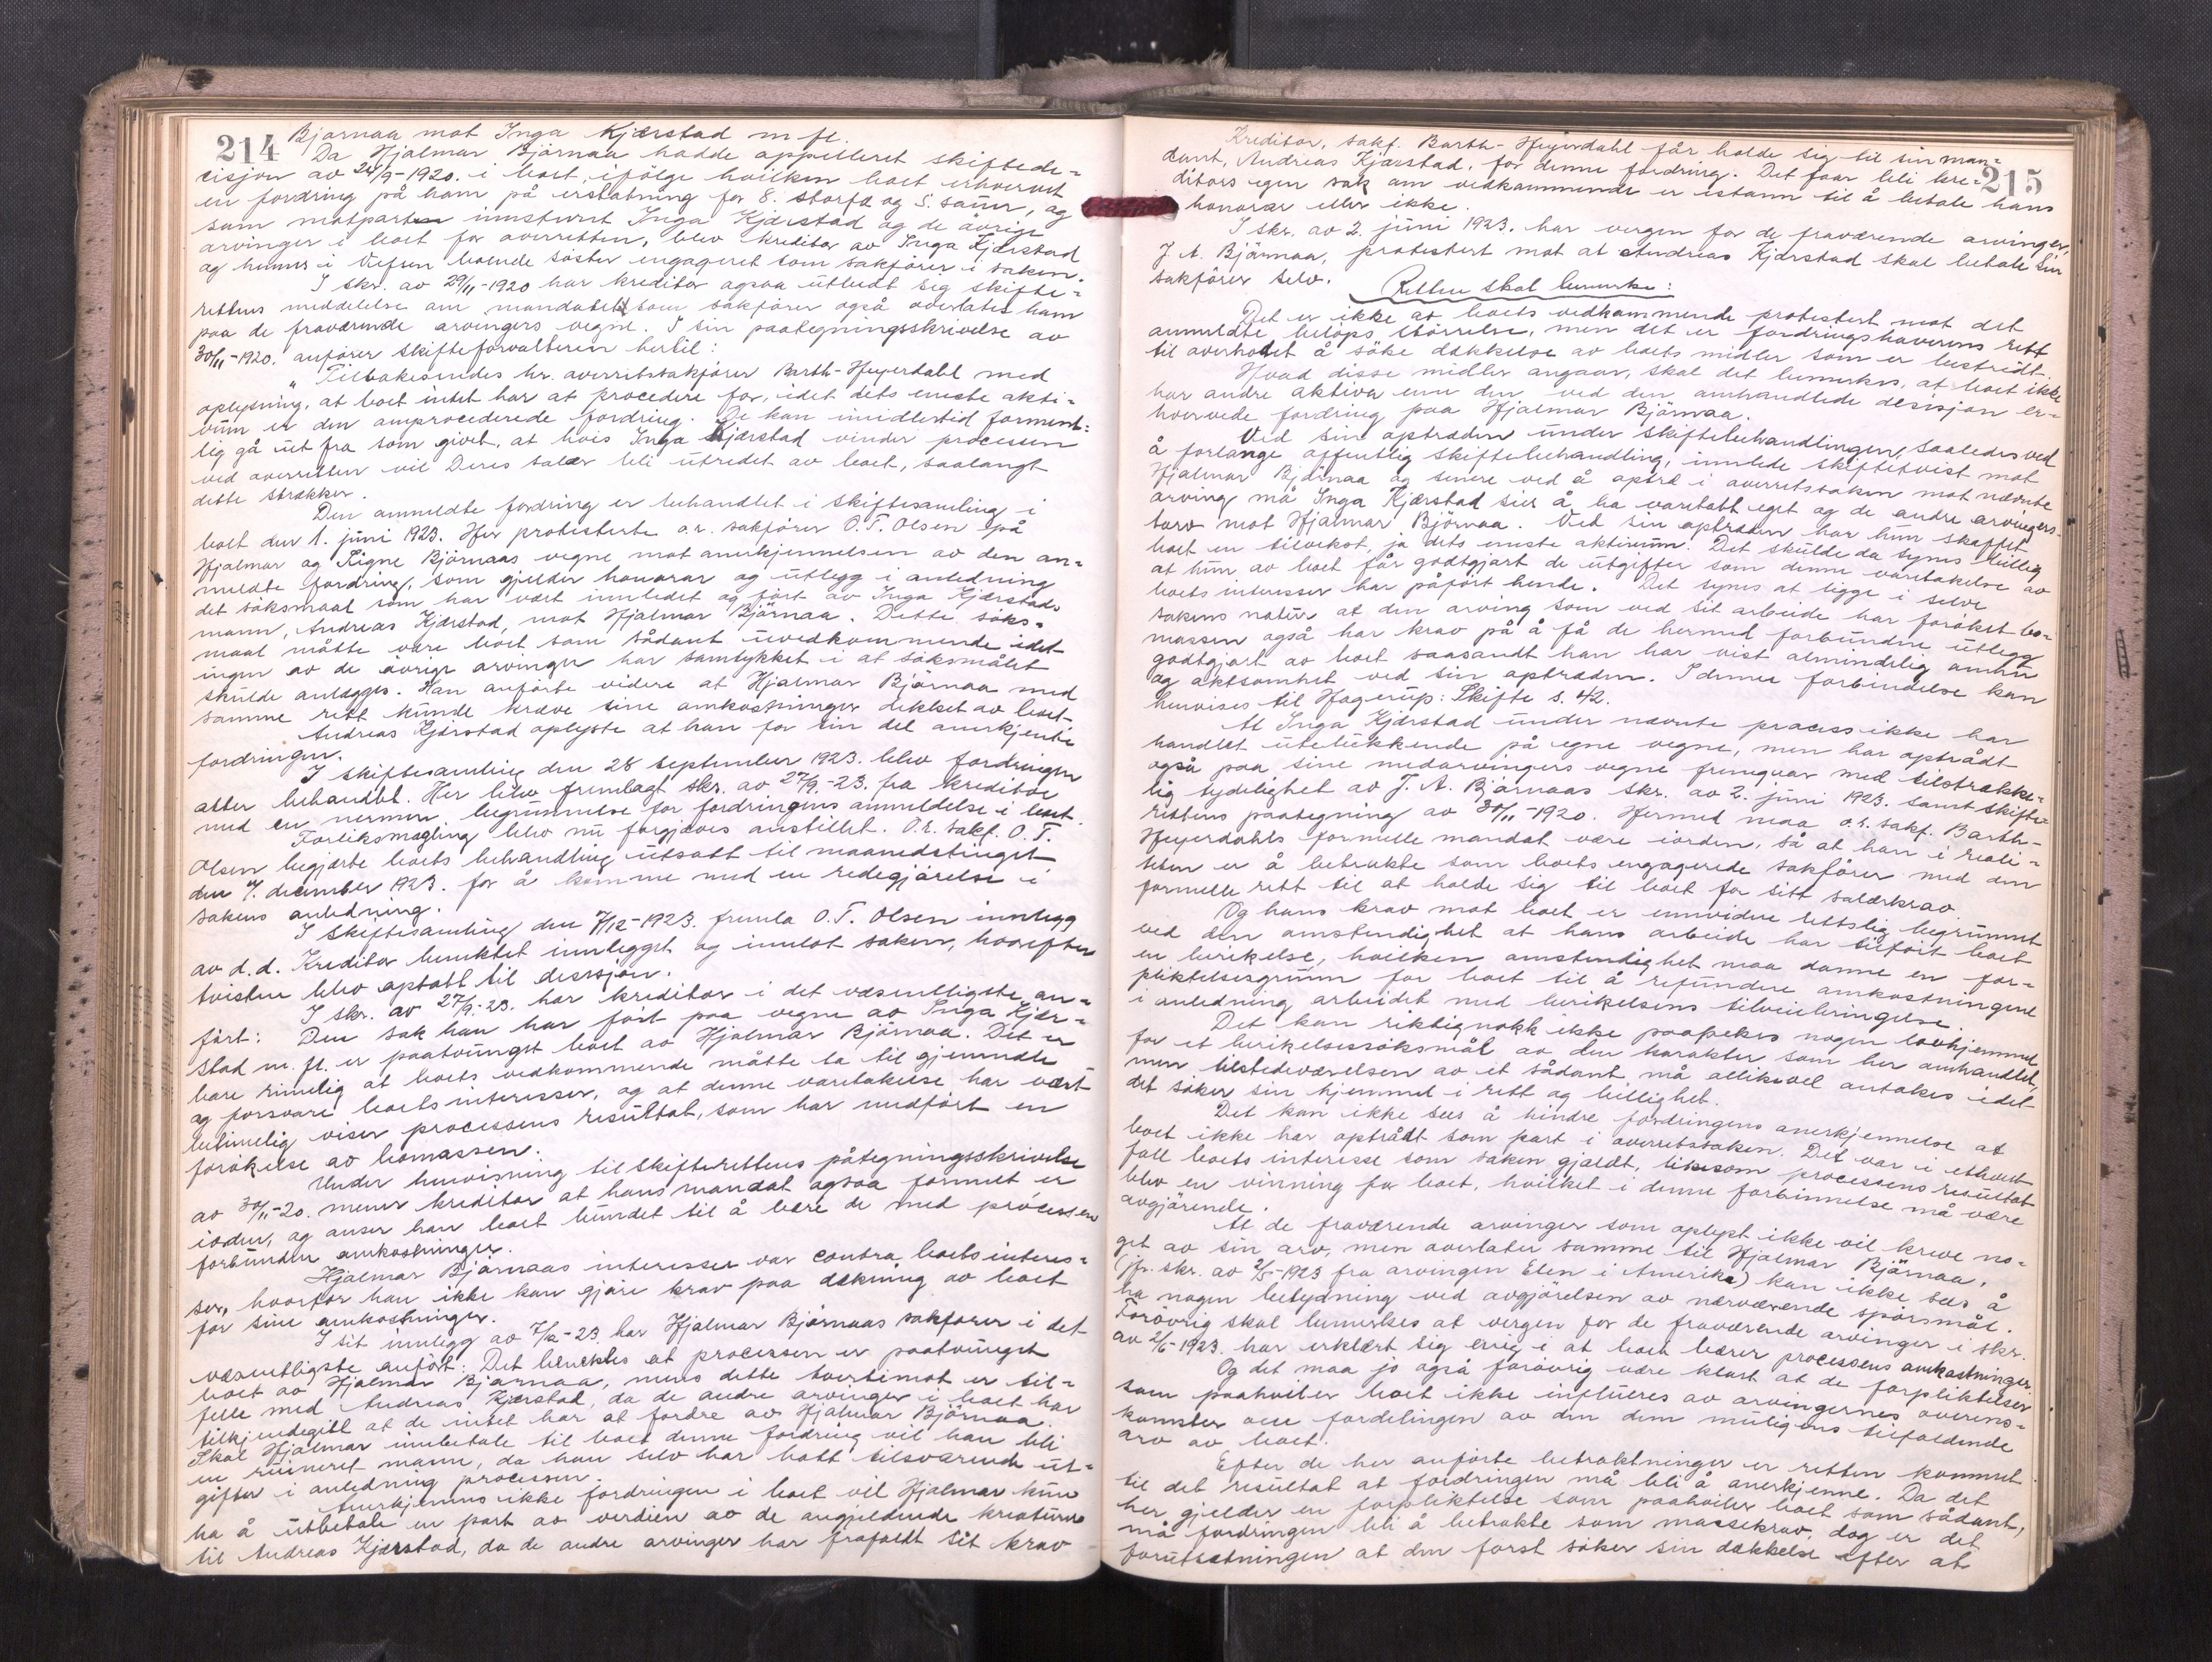 214
Bjørnaa mot Inga Kjærstad m fl.
Da Hjalmar Bjørnaa hadde appelleret skiftede=
cisjon av 24/9-1920. i boet, ifølge hvilken boet erhvervet
en fordring på ham på erstatning for 8. storfæ og 5. sauer, og
som motpart innstevnt Inga Kjærstad og de øvrige
arvinger i boet for overretten, blev kreditor av Inga Kjærstad
og hennes i Vefsen boende søster engageret som sakfører i saken.
I skr. av 29/11-1920 har kreditor ogsaa utbedt sig skifte=
rettens meddelelse om mandatet som sakfører også overlates ham
paa de fraværende arvingers vegne. I sin paategningsskrivelse av
30/11-1920. anfører skifteforvalteren hertil:
"Tilbakesendes hr. overretssakfører Barth-Heyerdahl med
oplysning, at boet intet har at procedere for, idet dets eneste akti=
vum er den omprocederede fordring. De kan imidlertid forment=
lig gå ut fra som givet, at hvis Inga Kjærstad vinder processen
ved overretten vil Deres salær bli utredet av boet, saalangt
dette strækker.
Den anmeldte fordring er behandlet i skiftesamling i
boet den 1. juni 1923. Her protesterte o.r. sakfører O.T. Olsen på
Hjalmar og Signe Bjørnaas vegne mot anerkjennelsen av den an=
meldte fordring, som gjelder honorar og utlegg i anledning
det søksmaal som har vært innledet og ført av Inga Kjærstads
mann, Andreas Kjærstad, mot Hjalmar Bjørnaa. Dette søks=
maal måtte være boet som sådant uvedkommende idet
ingen av de øvrige arvinger har samtykket i at søksmålet
skulde anlægges. Han anførte videre at Hjalmar Bjørnaa med
samme rett kunde kræve sine omkostninger dekket av boet.
Andreas Kjærstad oplyste at han for sin del anerkjente
fordringen.
I skiftesamling den 28 september 1923. blev fordringen
atter behandlet. Her blev fremlagt skr. av 27/9-23. fra kreditor
med en nermere begrunnelse for fordringens anmeldelse i boet.
Forliksmægling blev nu forgjæves anstillet. O.r. sakf. O.T.
Olsen begjærte boets behandling utsatt til maanedstinget
den 7. december 1923. for å komme med en redegjørelse i
sakens anledning.
I skiftesamling den 7/12-1923. fremla O.T. Olsen innlegg
av d.d. Kreditor benektet innlegget og innlot saken, hvorefter
tvisten blev optatt til decisjon.
I skr. av 27/9-23. har kreditor i det væsentligste an=
ført: Den sak han har ført paa vegne av Inga Kjær=
stad m. fl. er paatvunget boet av Hjalmar Bjørnaa. Det er
bare rimelig at boets vedkommende måtte ta til gjenmæle
og forsvare boets interesser, og at denne varetakelse har vært
betimelig viser processens resultat, som har medført en
forøkelse av bomassen.
Under henvisning til skifterettens påtegningsskrivelse
av 30/11-20. mener kreditor at hans mandat ogsaa formelt er
iorden, og anser han boet bundet til å bære de med processen
forbundne omkostninger.
Hjalmar Bjørnaas interesser var contra boets interes=
ser, hvorfor han ikke kan gjøre krav paa dekning av boet
for sine omkostninger.
I sit innlegg av 7/12-23. har Hjalmar Bjørnaas sakfører i det
væsentligste anført: Det benektes at processen er paatvunget
boet av Hjalmar Bjørnaa, mens dette tvertimot er til=
felle med Andreas Kjærstad, da de andre arvinger i boet har
tilkjendegitt at de intet har at fordre av Hjalmar Bjørnaa.
Skal Hjalmar innbetale til boet denne fordring vil han bli
en ruineret mann, da han selv har hatt tilsvarende ut=
gifter i anledning processen.
Anerkjennes ikke fordringen i boet vil Hjalmar kun
ha å utbetale en part av verdien av de angjeldende kreaturer
til Andreas Kjærstad, da de andre arvinger har frafaldt sit krav
215
Kreditor, sakf. Barth-Heyerdahl får holde sig til sin man=
dant, Andreas Kjærstad, for denne fordring. Det faar bli kre=
ditors egen sak om vedkommende er istann til å betale hans
honorar eller ikke.
I skr. av 2. juni 1923. har vergen for de fraværende arvinger,
J. A. Bjørnaa, protestert mot at Andreas Kjærstad skal betale sin
sakfører selv.
Retten skal bemerke:
Det er ikke av boets vedkommende protestert mot det
anmeldte beløps størrelse, men det er fordringshaverens rett
til overhodet å søke dekkelse av boets midler som er bestridt.
Hvad disse midler angaar, skal det bemerkes, at boet ikke
har andre aktiva enn den ved den omhandlede desisjon er=
hvervede fordring paa Hjalmar Bjørnaa.
Ved sin optræden under skiftebehandlingen, saaledes ved
å forlange offentlig skiftebehandling, innlede skiftetvist mot
Hjalmar Bjørnaa og senere ved å optre i overretssaken mot nævnte
arving må Inga Kjærstad sies å ha varetatt eget og de andre arvingers
tarv mot Hjalmar Bjørnaa. Ved sin optræden har hun skaffet
boet en tilvekst, ja dets eneste aktivum. Det skulde da synes billig
at hun av boet får godtgjort de utgifter som denne varetakelse av
boets interesser har påført hende. Det synes at ligge i selve
sakens natur at den arving som ved sit arbeide har forøket bo=
massen også har krav på å få de hermed forbundne utlegg
godtgjort av boet saasandt han har vist almindelig omhu
og aktsomhet ved sin optræden. I denne forbindelse kan
henvises til Hagerup: Skifte s. 42.
At Inga Kjærstad under nævnte process ikke har
handlet utelukkende på egne vegne, men har optrådt
også paa sine medarvingers vegne fremgaar med tilstrække=
lig tydelighet av J. A. Bjørnaas skr. av 2. juni 1923. samt skifte=
rettens paategning av 30/11-1920. Hermed maa o.r. sakf. Barth-
Heyerdahls formelle mandat være iorden, så at han i reali=
teten er å betrakte som boets engagerede sakfører med den
formelle rett til at holde sig til boet for sitt salærkrav.
Og hans krav mot boet er ennvidere rettslig begrunnet
ved den omstendighet at hans arbeide har tilført boet
en berikelse, hvilken omstendighet maa danne en for=
pliktelsesgrunn for boet til å refundere omkostningene
i anledning arbeidet med berikelsens tilveiebringelse.
Det kan riktignokk ikke paapekes nogen lovhjemmel
for et berikelsessøksmål av den karakter som her omhandlet,
men tilstedeværelsen av et sådant må allikevel antakes idet
det søker sin hjemmel i rett og billighet.
Det kan ikke sees å hindre fordringens anerkjennelse at
boet ikke har optrådt som part i overretssaken. Det var i ethvert
fall boets interesse som saken gjaldt, likesom processens resultat
blev en vinning for boet, hvilket i denne forbinnelse må være
avgjørende.
At de fraværende arvinger som oplyst ikke vil kreve no=
get av sin arv, men overlater samme til Hjalmar Bjørnaa,
(jfr. skr. av 2/5-1923 fra arvingen Elen i Amerika) kan ikke sees å
ha nogen betydning ved avgjørelsen av nærværende spørsmål.
Forøvrig skal bemerkes at vergen for de fraværende arvinger i skr.
av 2/6-1923. har erklært sig enig i at boet bærer processens omkostninger.
Og det maa jo også forøvrig være klart at de forpliktelser
som paahviler boet ikke influeres av arvingernes overens=
komster om fordelingen av den dem muligens tilfaldende
arv av boet.
Efter de her anførte betraktninger er retten kommet
til det resultat at fordringen må bli å anerkjenne. Da det
her gjelder en forpliktelse som paahviler boet som sådant,
må fordringen bli å betrakte som massekrav, dog er det
forutsetningen at den først søker sin dækkelse efter at